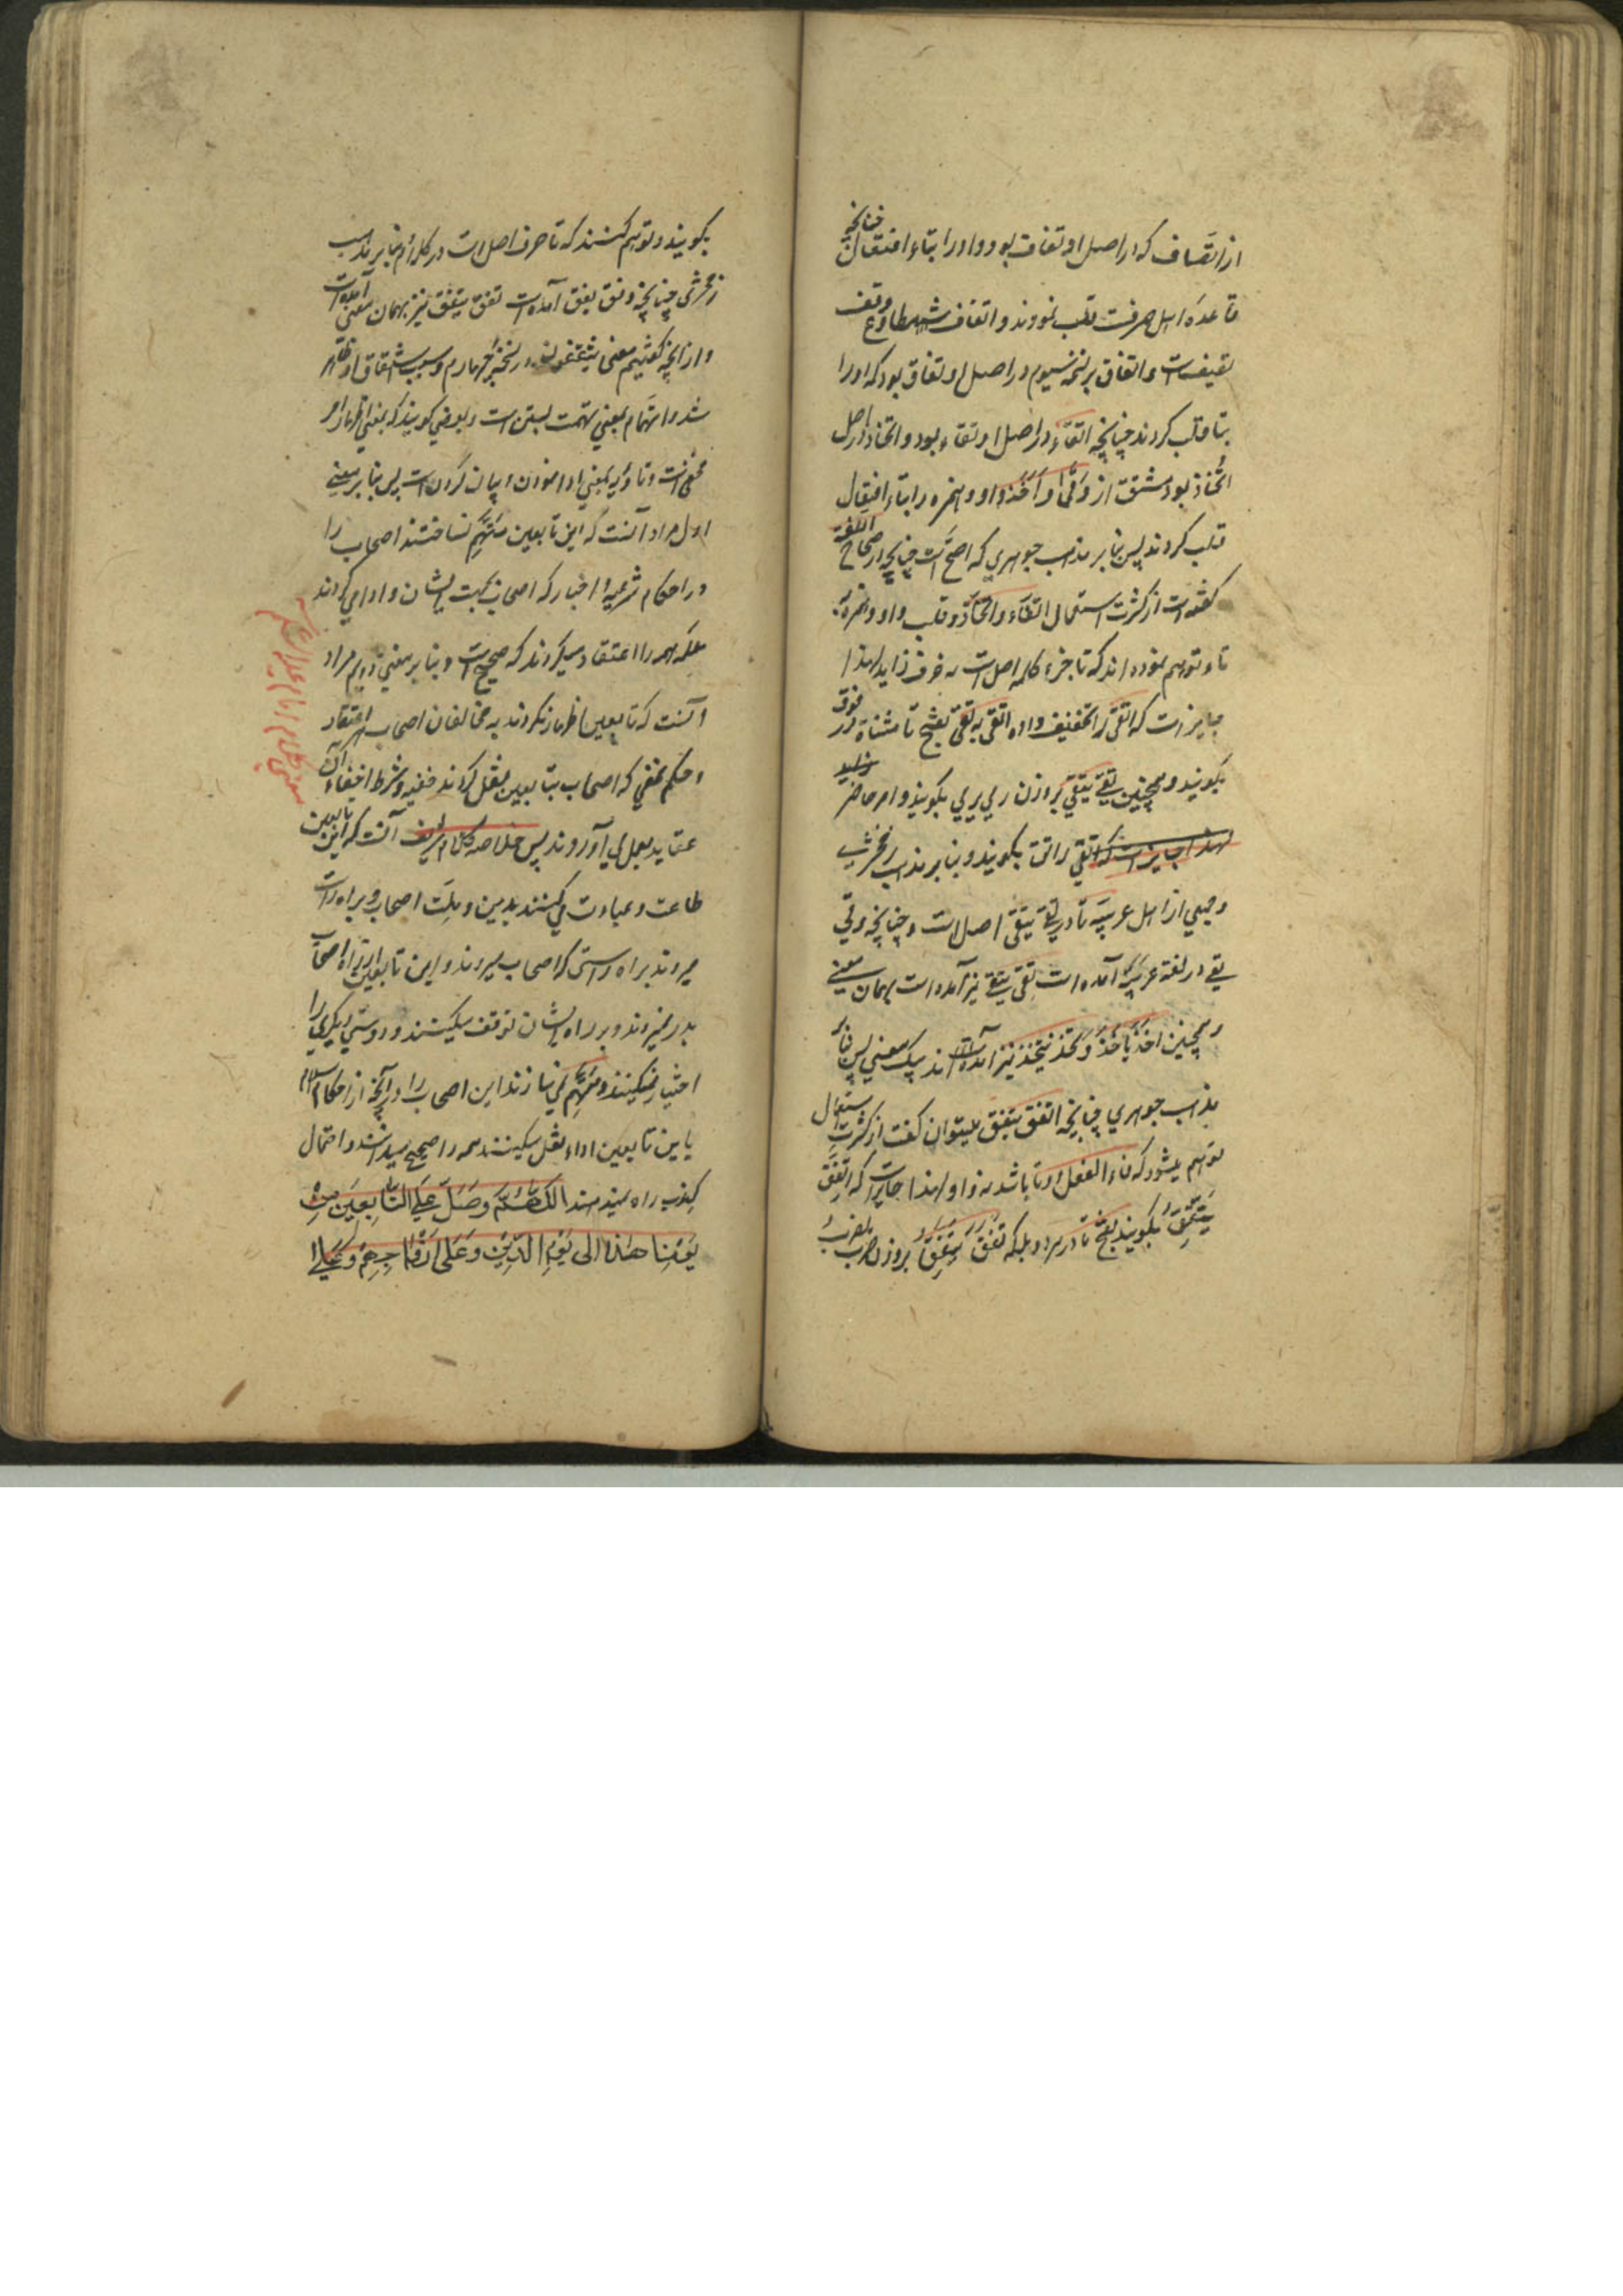 از اتصاف که در اصل او تقاف بود و او را بتاء افتعال چنانچه
قاعده اهل صرفست قلب نمودند و اتقاف مطاوع وقف
یقیفست و اتفاق بر نسخه سیوم در اصل او تفاق بود که او را
بتا قلب کردند چنانچه اتقاء در اصل او تقاء بود و اتخاذ در اصل
ائتخاذ بود مشتق از وقی و اخذ واو و همزه را بتاء افتعال
قلب کردند پس بنا بر مذهب جوهری که اصح است چنانچه در صحاح اللغة
گفته است از کثرت استعمال اتقاء و اتخاذ و قلب واو و همزه به
تاء توهم نموده اند که تا جزء کلمه اصل است نه حرف زاید لهذا
جایز است که اتقی را تخفیف داده اتقی به تقی بفتح تا مثناة فوق
بگویند و همچنین تقی یتقی بروزن رمی یرمی بگویند و امر حاضر
لهذا جایز است که اتقی را تق بگویند و بنا بر مذهب زمخشری
و جمعی از اهل عربیه تا در تقی یتقی اصل است و چنانچه وقی
یقی در لغة عربیه آمده است تقی یتقی نیز آمده است بهمان معنی
و همچنین اخذ یاخذ و تخذ یتخذ نیز آمده اند بیک معنی پس بنا بر
مذهب جوهری چنانچه اتفق یتفق میتوان گفت از کثرت استعمال
توهم میشود که فاء الفعل او تا باشد نه واو لهذا جایز است که اتفق
یتفق بگویند بفتح تا در هر دو بلکه تفق یتفق بروزن ضرب یضرب
بگویند و توهم کنند که تا حرف اصل است در کلام و بنا بر مذهب
زمخشری چنانچه وفق یفق آمده است تفق یتفق نیز بهمان معنی آمده است
و از آنچه گفتیم معنی یتقفون در نسخه چهارم و سبب اشتقاق او ظاهر
شد و اتهام بمعنی تهمت بستن است و بعضی گویند که بمعنی اظهار امر
مخفیست و تادیه بمعنی ادا نمودن و بیان کردن است پس بنا بر معنی
اول مراد آنست که این تابعین متهم نساختند اصحاب را
در احکام شرعیه و اخبار که اصحاب بجهت ایشان و ادا می کردند
بلکه همه را اعتقاد میکردند که صحیح است و بنا بر معنی دویم مراد
آنست که تابعین اظهار نکردند به مخالفان اصحاب اعتقاد
و حکم مخفی که اصحاب بتابعین نقل کردند خفیه و شرط اخفاء آن
عقاید بعمل می آوردند پس خلاصه کلام شریف آنست که این تابعین
طاعت و عبادت می کنند بدین و ملت اصحاب و براه راست
میروند براه راستی که اصحاب میروند و این تابعین از راه اصحاب
بدر نمیروند و بر راه ایشان توقف میکنند و روش دیگری را
اختیار نمیکنند و متهم نمی سازند این اصحاب را در آنچه از احکام اسلام
باین تابعین اداء نقل میکنند همه را صحیح میدانند و احتمال
کذب راه نمیدهند اللهم وصل علی التابعین من
یومنا هذا الی یوم الدین وعلی ازواجهم وعلی